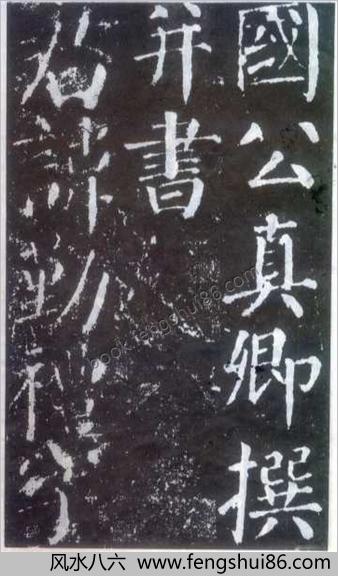 國公真卿撰
并書
君諱勤禮字
book.fengshui86.com
风水八六 www.fengshui86.com